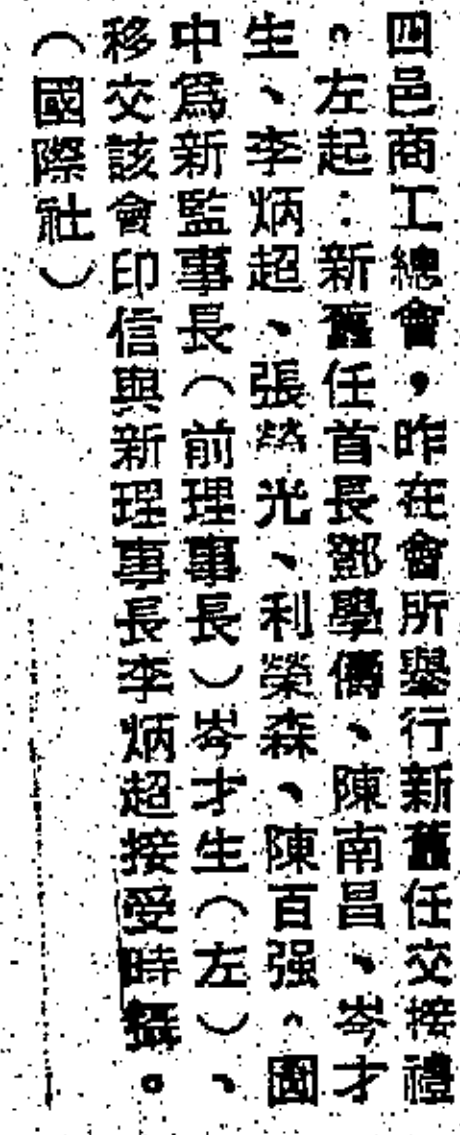 四邑商工總會，昨在會所舉行新舊任交接禮
。左起：新舊任首長鄧學儔、陳南昌、岑才
生、李炳超、張榮光、利榮森、陳百强。圖
中爲新監事長（前理事長）岑才生（左）、
移交該會印信與新理事長李炳超接受時攝。
（國際社）